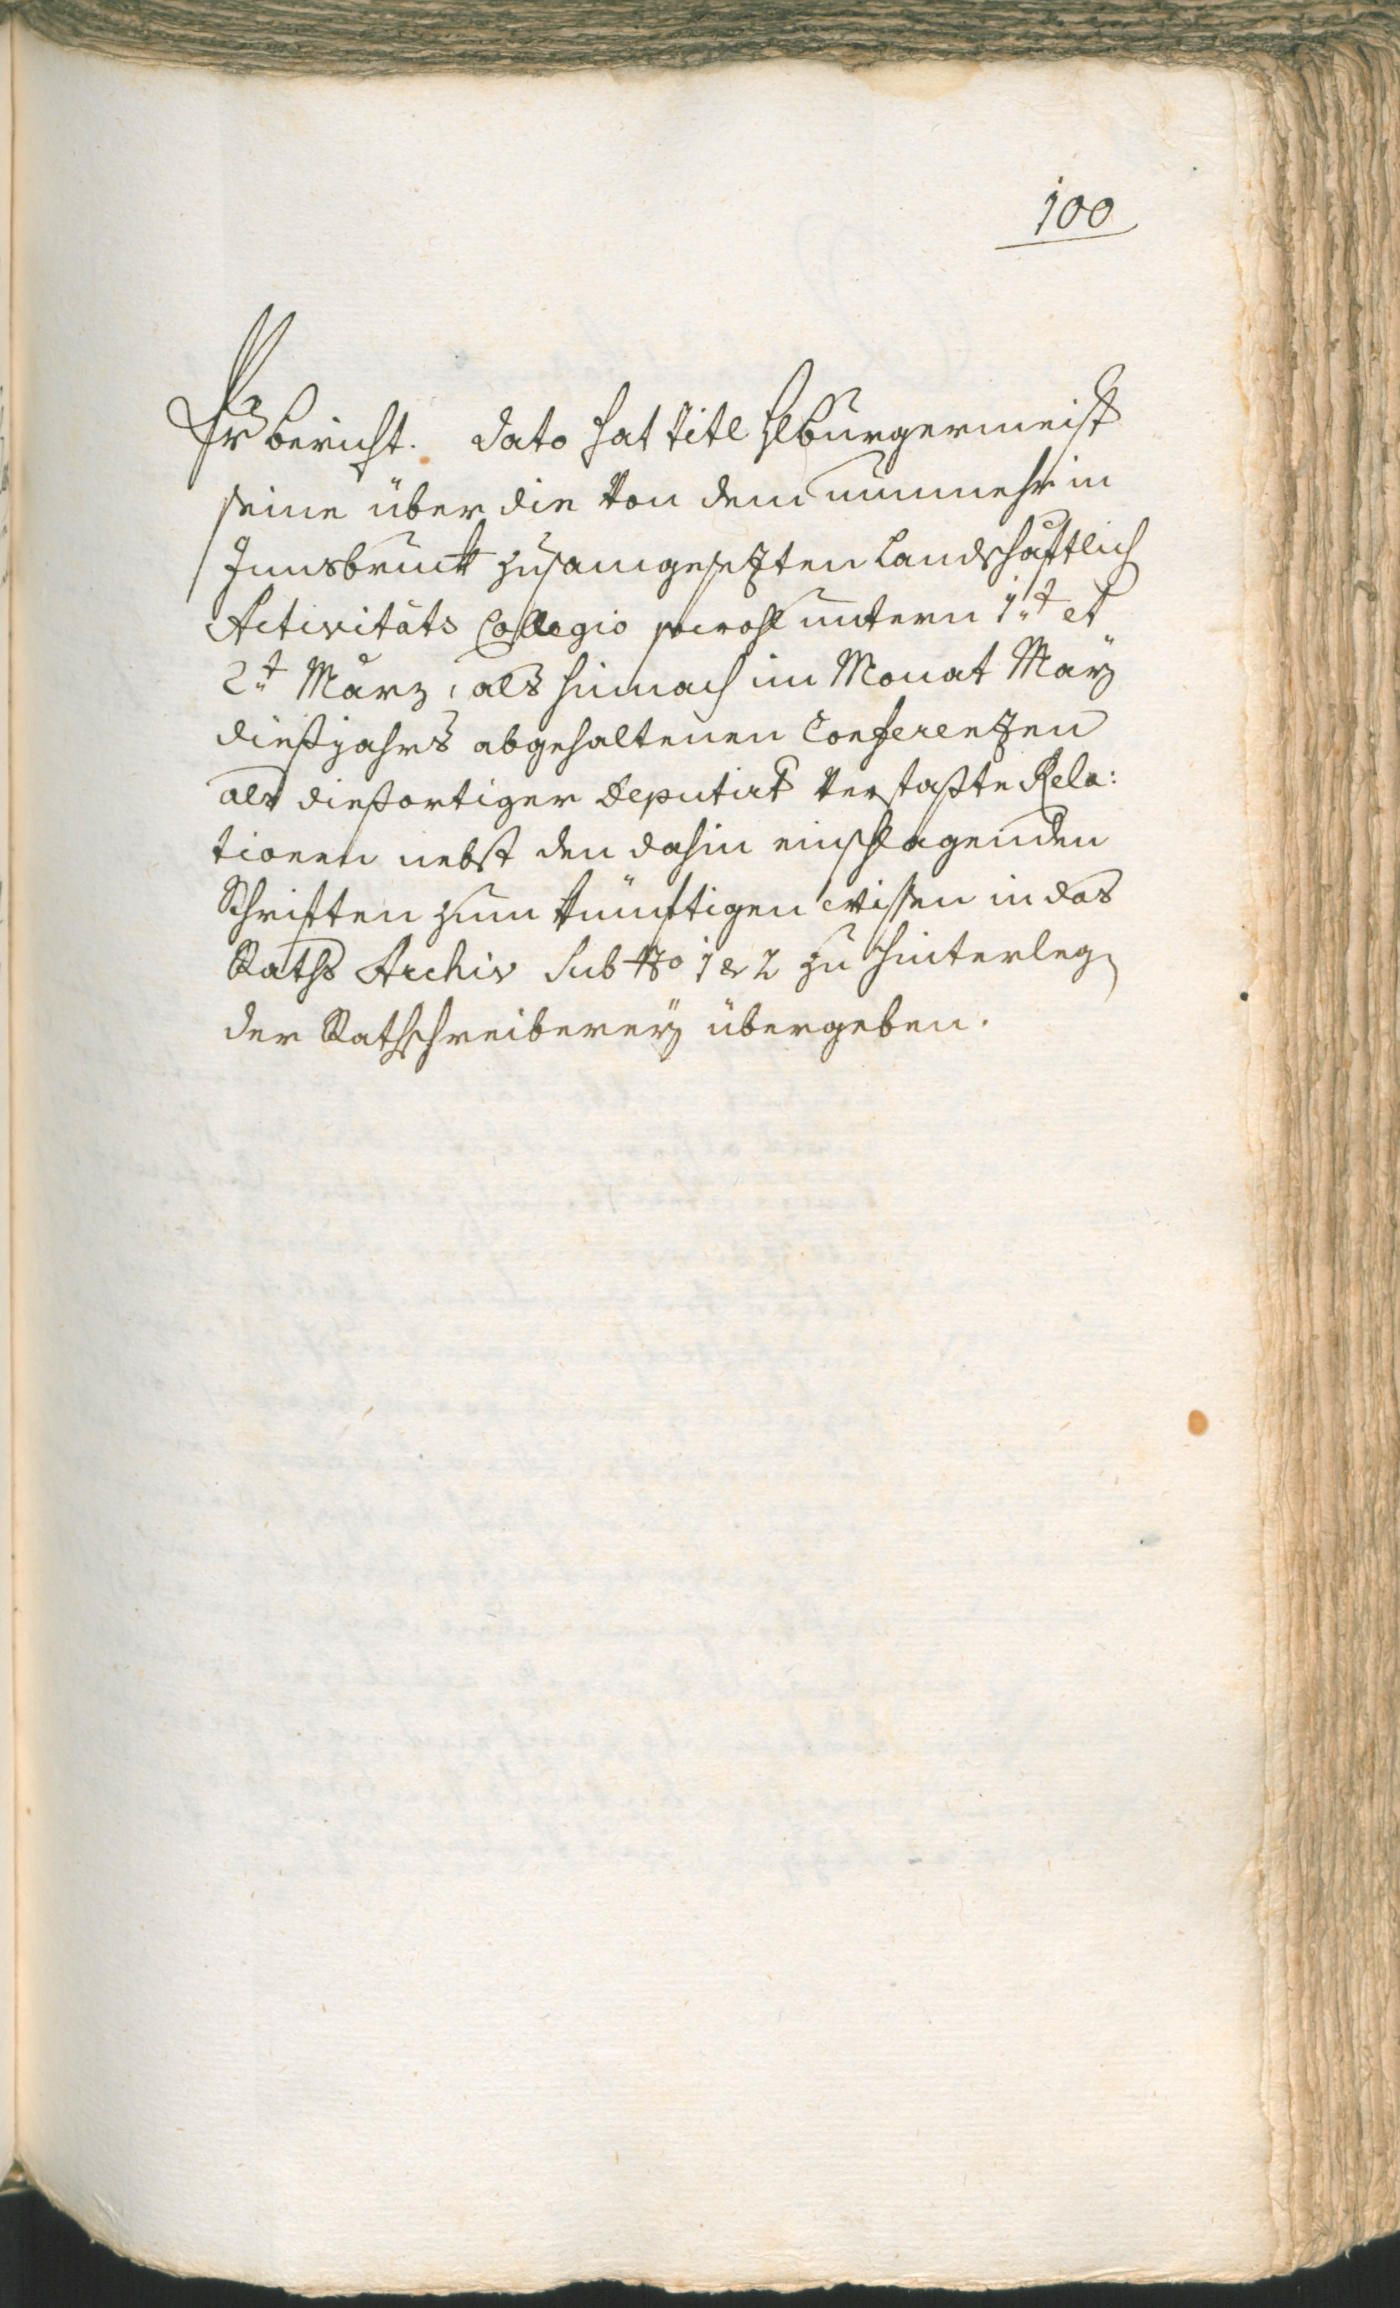 100
Fürbericht. dato hat titl H: burgermeist
seine über die von dem nunmehr in
Innsbruck zusamgesezten Landschaftlich
Activitäts Collegio sowohl untern 1t et
2t März, als hinnach im Monat März
diessjahrs abgehaltenen Conferenzen
als diessortiger Deputirt verfasste Rela:
tionen nebst den dahin einschlagenden
Schriften zum künftigen Wissen in das
Raths Archiv Sub No 1 & 2 zu hinterleg
der Rathschreiberey übergeben.